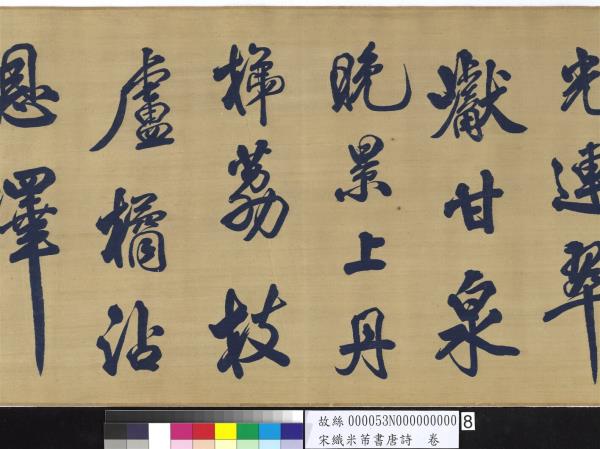 光連翠
巘甘泉
晚景上丹
梯荔枝
盧橘沾
恩澤
故絲 000053N000000000 8
宋織米芾書唐詩 卷